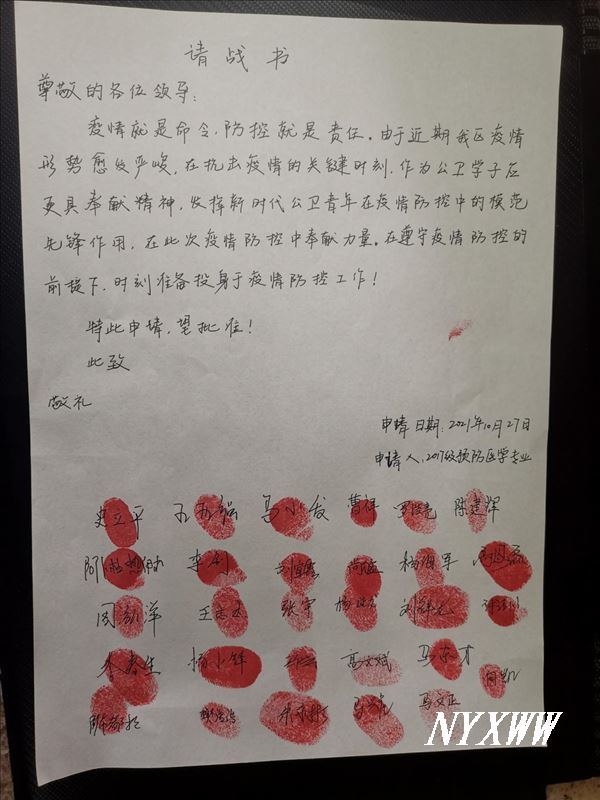 请战书
尊敬的各位领导：
疫情就是命令，防控就是责任。由于近期我区疫情
形势愈发严峻，在抗击疫情的关键时刻，作为公卫学子应
更具奉献精神，发挥新时代公卫青年在疫情防控中的模范
先锋作用，在此次疫情防控中奉献力量。在遵守疫情防控的
前提下，时刻准备投身于疫情防控工作！
特此申请，望批准！
此致
敬礼
申请日期：2021年10月27日
申请人：2017级预防医学专业
史立平 马小发 曹保 陈建辉
李刚
周新洋 王志杰 张宇
杨小锋 马文斌
马文正
NYXWW